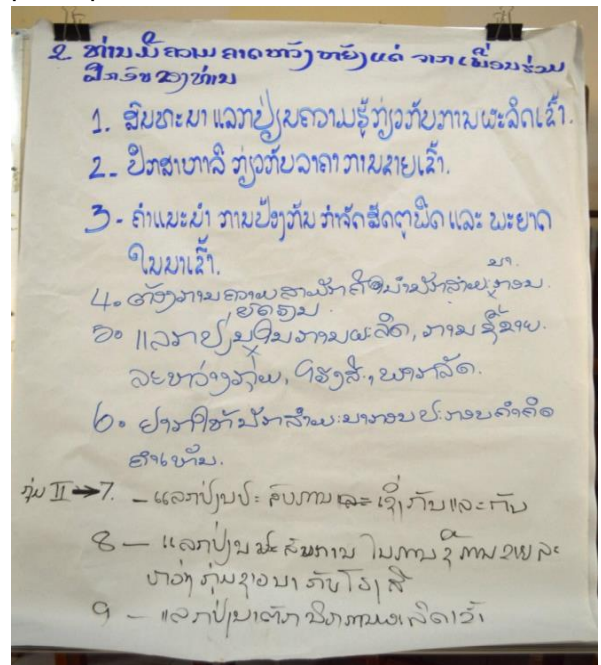 2. ທ່ານມີຄວາມ ຄາດຫວັງຫຍັງແດ່ ຈາກ ເພື່ອນຮ່ວມ
ຝຶກອົບຂອງທ່ານ
1. ສົນທະນາ ແລກປ່ຽນຄວາມຮູ້ກ່ຽວກັບການຜະລິດເຂົ້າ.
2- ປຶກສາຫາລື ກ່ຽວກັບລາຄາ ການຂາຍເຂົ້າ.
3- ຄຳແນະນຳ ການປ້ອງກັນ ກຳຈັດສັດຕູພືດ ແລະ ພະຍາດ
ໃນນາເຂົ້າ.
4. ຕ້ອງການຄວາມສາມັກຄີ ນຳນັກສຳມະ ກອນ.
ນາ
5. ແລກປ່ຽນ ໃນການຜະລິດ, ການຊື້ຂາຍ.
ລະຫວ່າງກຸ່ມ, ໂຮງສີ, ພາກລັດ.
6. ຢາກໃຫ້ນັກສຳມະນາກອນ ປະກອບຄຳຄິດ
ຄຳເຫັນ.
ກຸ່ມ II → 7. - ແລກປ່ຽນປະສົບການ ເຊິ່ງກັນແລະກັນ
8 - ແລກປ່ຽນປະສົບການ ໃນການຊື້ ການຂາຍ ລະ
ຫວ່າງ ກຸ່ມຊາວນາ ກັບໂຮງສີ
9 - ແລກປ່ຽນເຕັກນິກການຜະລິດເຂົ້າ